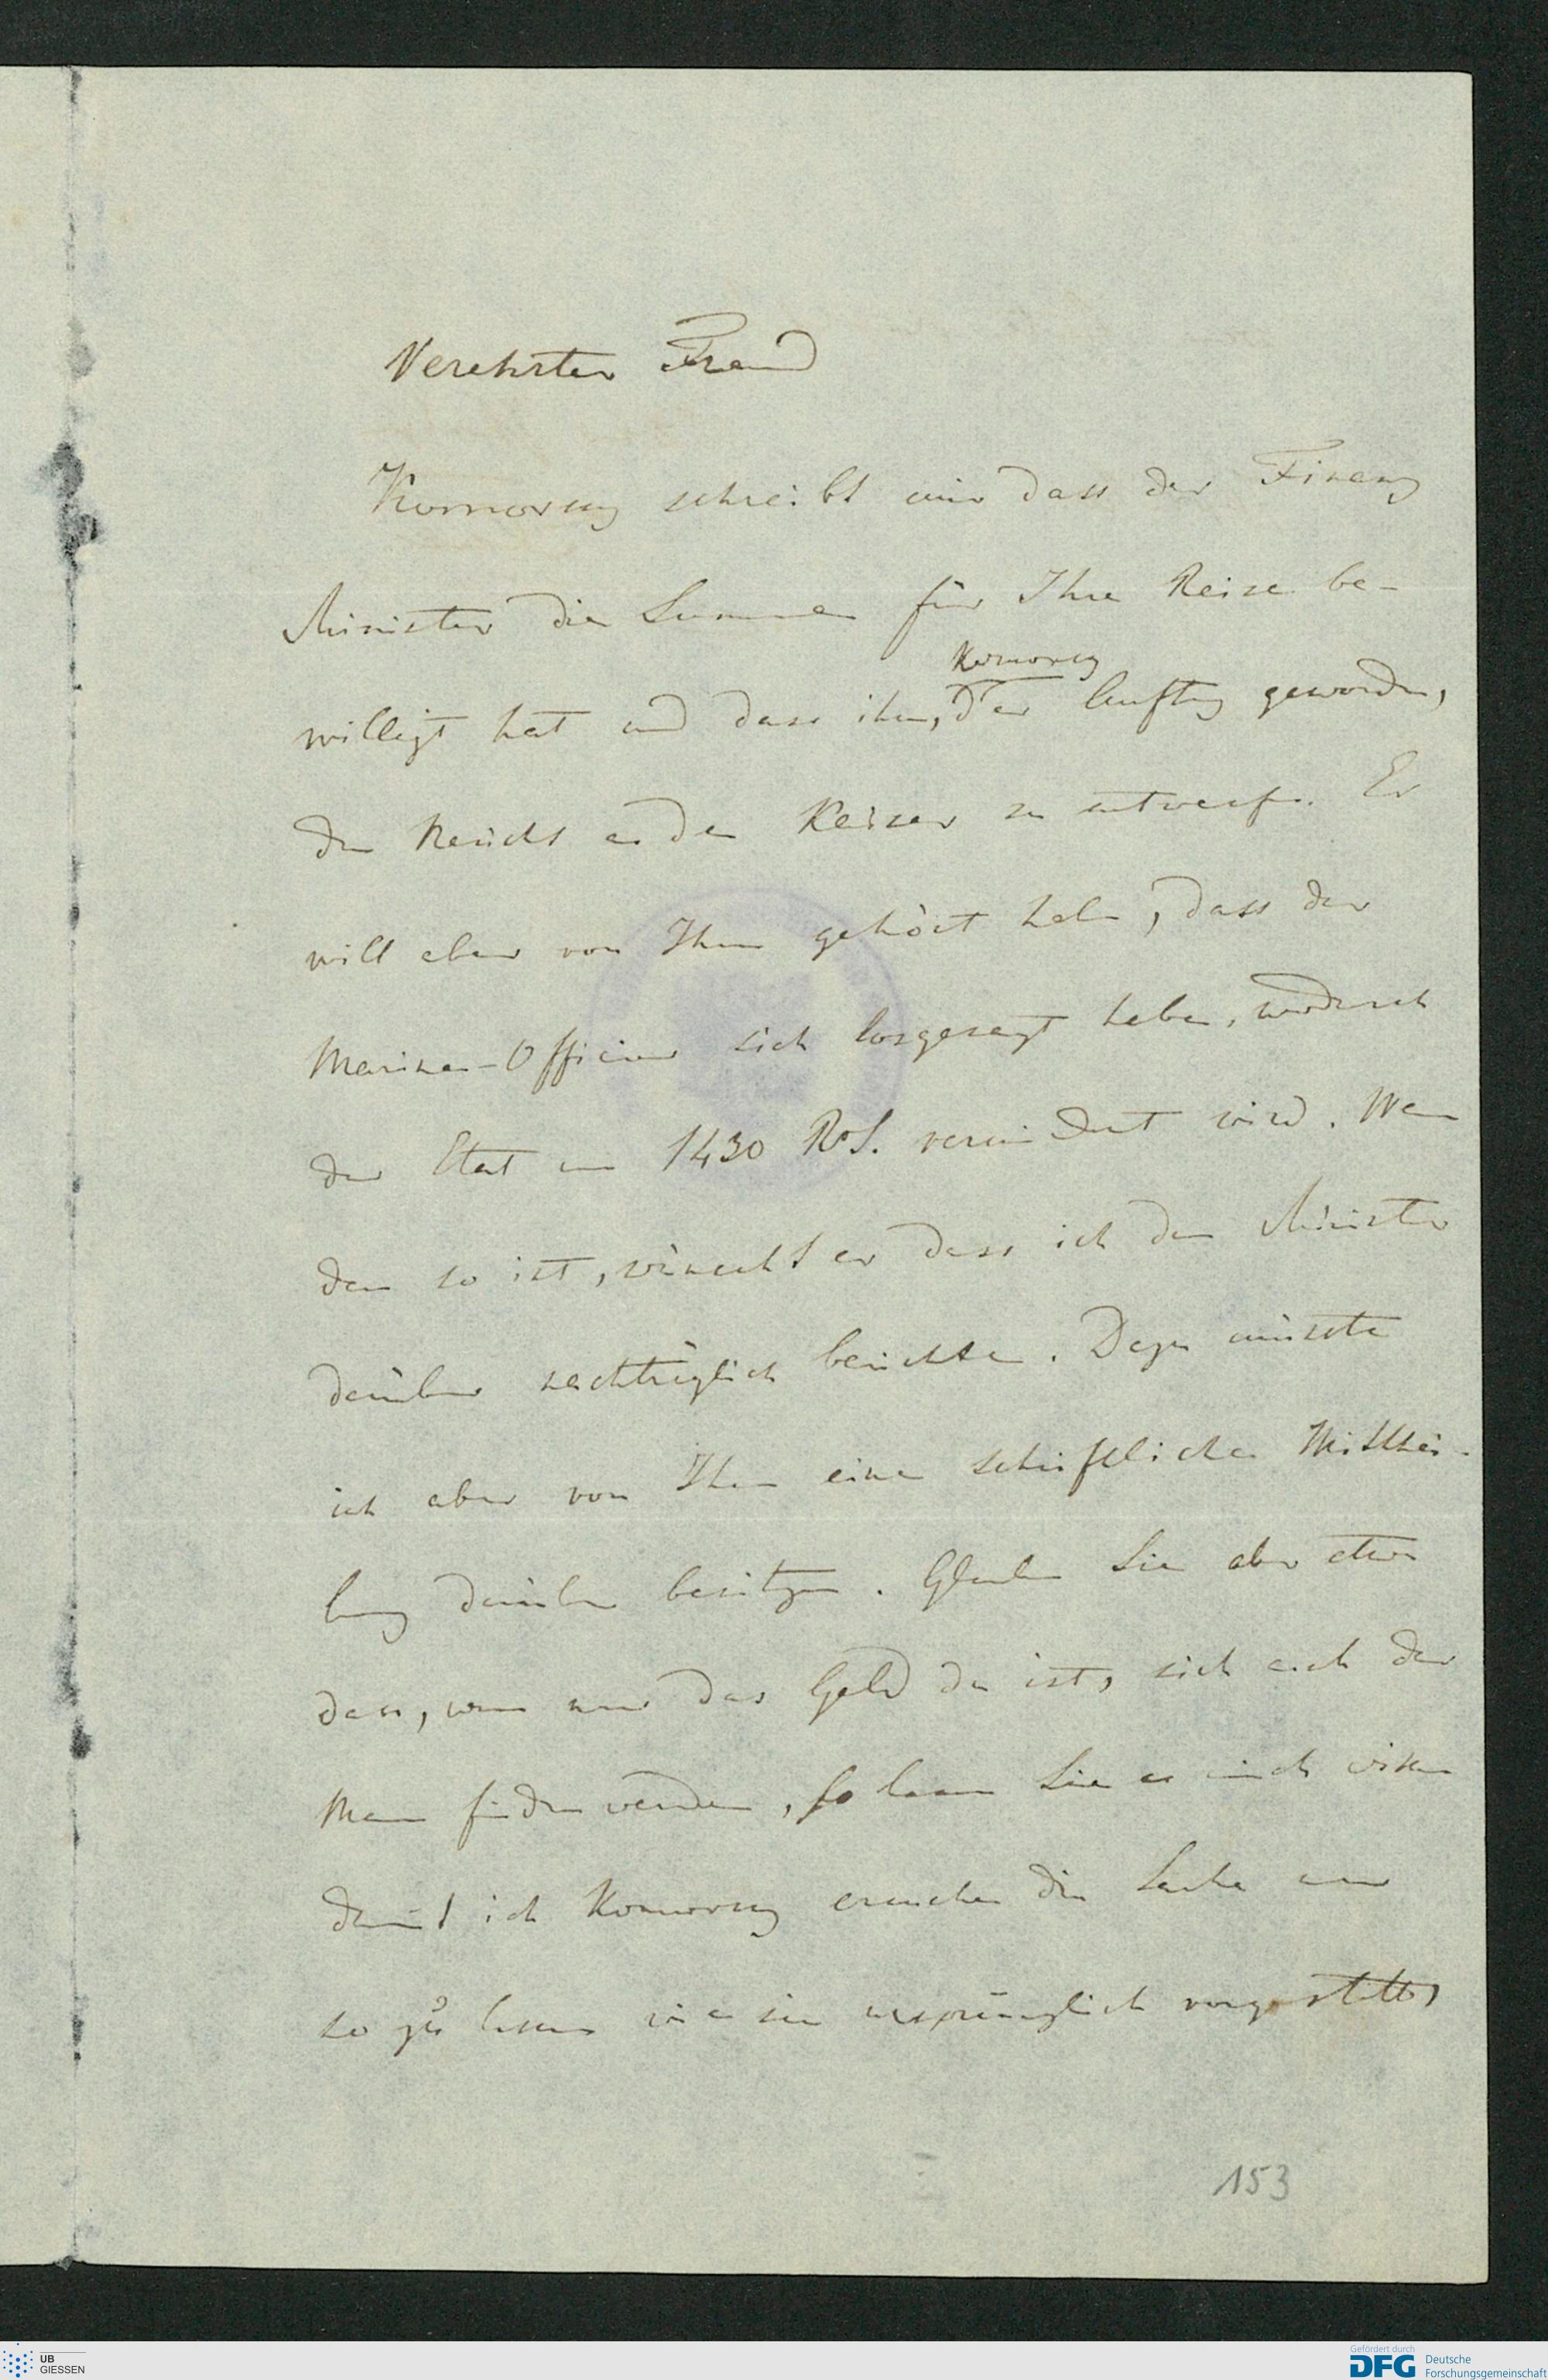 Verehrter Freund
Komorsky schreibt mir dass der Finanz
Minister die Summe für Ihre Reise be-
willigt hat und dass ihm, Komorsky
der Auftrag geworden,
den Bericht an den Kaiser zu entwerfen. Er
will aber von Ihnen gehört haben, dass der
Marine-Officier sich losgesagt habe, wodurch
der Etat um 1430 R. S. vermindert wird. Wenn
dem so ist, wünscht er dass ich dem Minister
darüber nachträglich berichte. Dazu müsste
ich aber von Ihnen eine schriftliche Mitthei-
lung darüber besitzen. Glauben Sie aber etwa
dass, wenn nur das Geld da ist, sich auch der
Mann finden werde, so lassen Sie es mich wissen
damit ich Komorsky ersuche die Sache nur
so zu lassen wie sie ursprünglich vorgestellt,
153
UB
GIESSEN
Gefördert durch
DFG Deutsche
Forschungsgemeinschaft